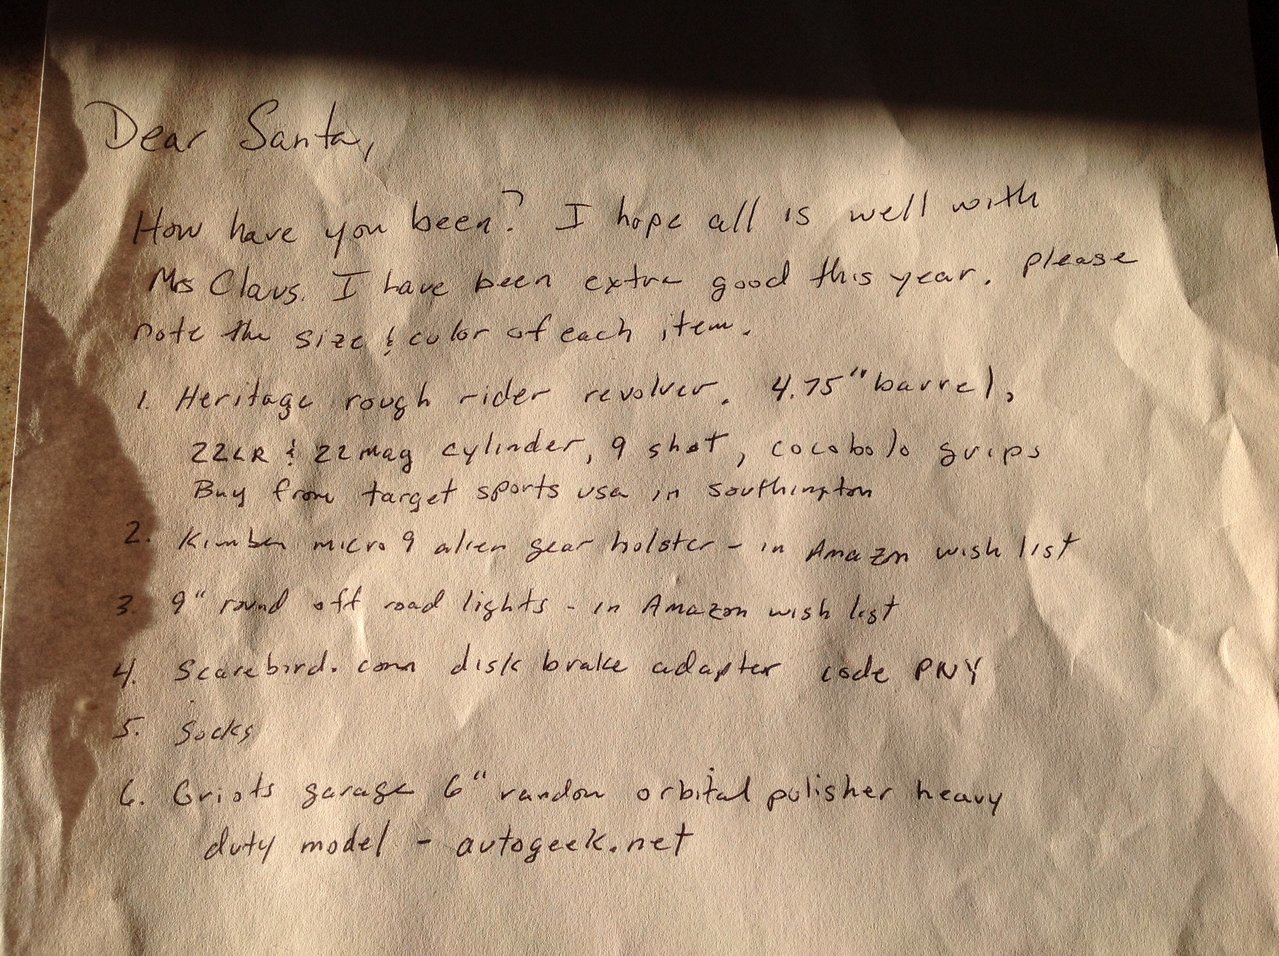 Dear Santa,
How have you been? I hope all is well with
Mrs Claus. I have been extra good this year. please
note the size & color of each item.
1. Heritage rough rider revolver. 4.75" barrel,
22LR & 22 mag cylinder, 9 shot, cocobolo grips
Buy from target sports usa in southington
2. Kimber micro 9 alien gear holster - in Amazon wish list
3. 9" round off road lights - in Amazon wish list
4. Scarebird.com disk brake adapter code PNY
5. Socks
6. Griots garage 6" random orbital polisher heavy
duty model - autogeek.net